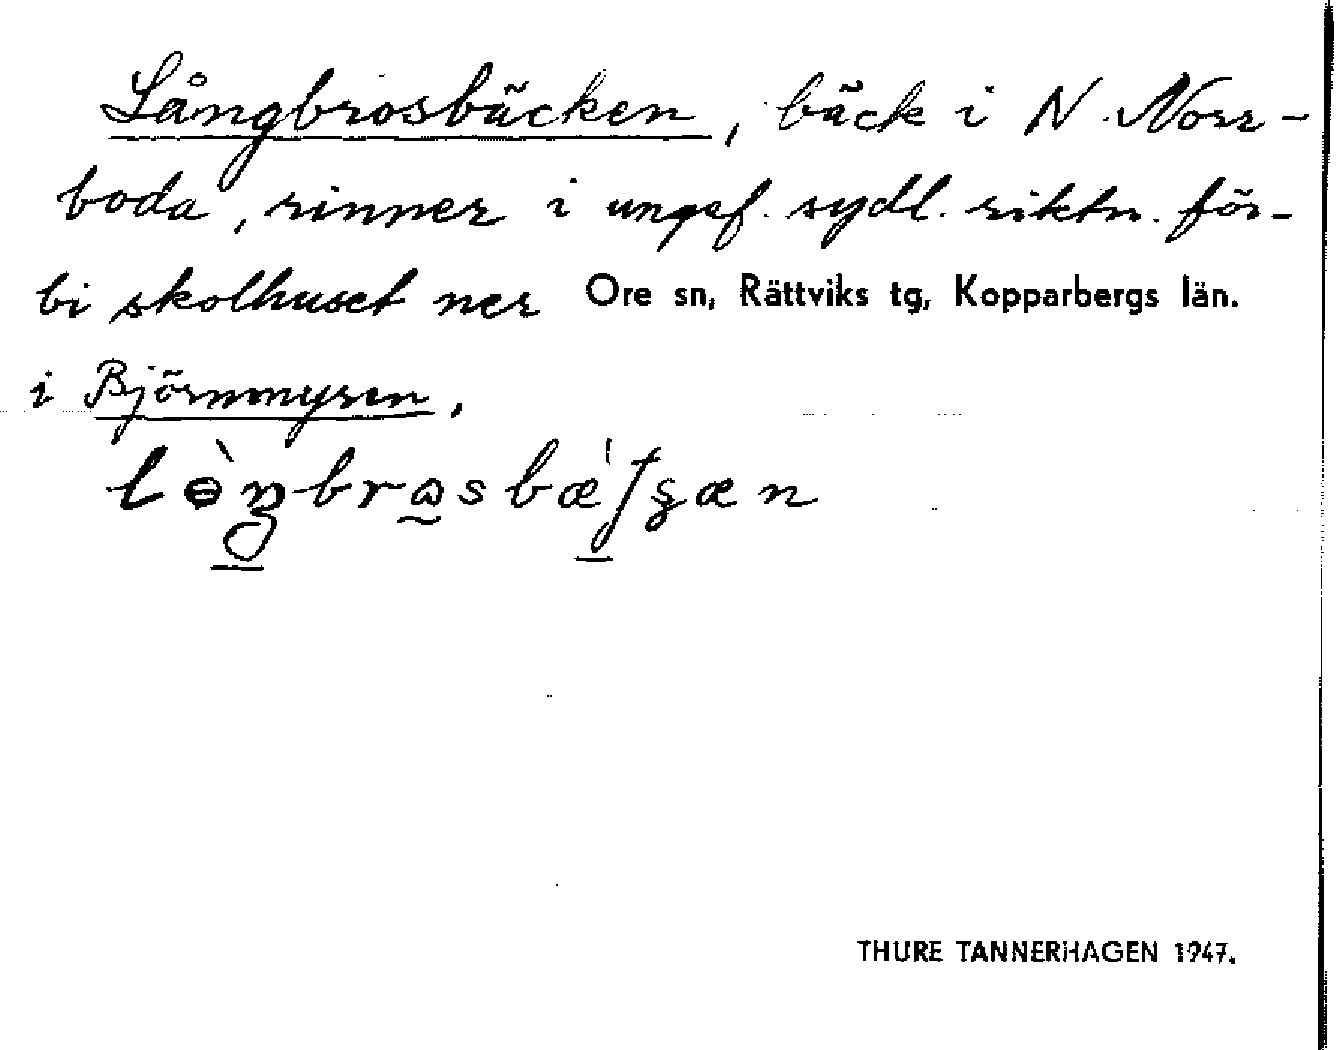 Långbrosbäcken, bäck i N Norr-
boda, rinner i ungef. sydl. riktn. för-
bi skolhuset ner Ore sn, Rättviks tg, Kopparbergs län.
i Björnmyren.
THURE TANNERHAGEN 1947.